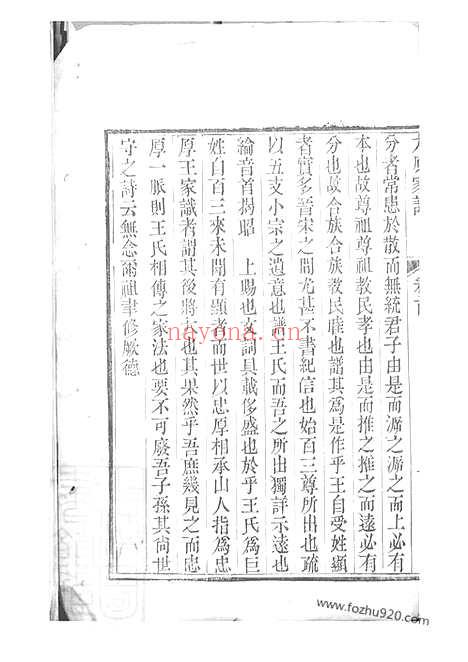 分者常患於散而無統君子由是而溯之溯之而上必有
本也故尊祖尊祖教民孝也由是而推之推之而遠必有
分也故合族合族教民睦也譜其為是作乎王自受姓顯
者實多晉宋之間尤甚不書紀信也始百三尊所出也疏
以五支小宗之遺意也譜王氏而吾之所出獨詳示遠也
綸音首揭昭 上賜也文詞具載侈盛也於乎王氏為巨
姓自百三來未聞有顯者而世以忠厚相承山人指為忠
厚王家識者謂其後將大也其果然乎吾庶幾見之而忠
厚一脈則王氏相傳之家法也要不可廢吾子孫其尚世
守之詩云無念爾祖聿修厥德
nayona.cn
www.fozhu920.com